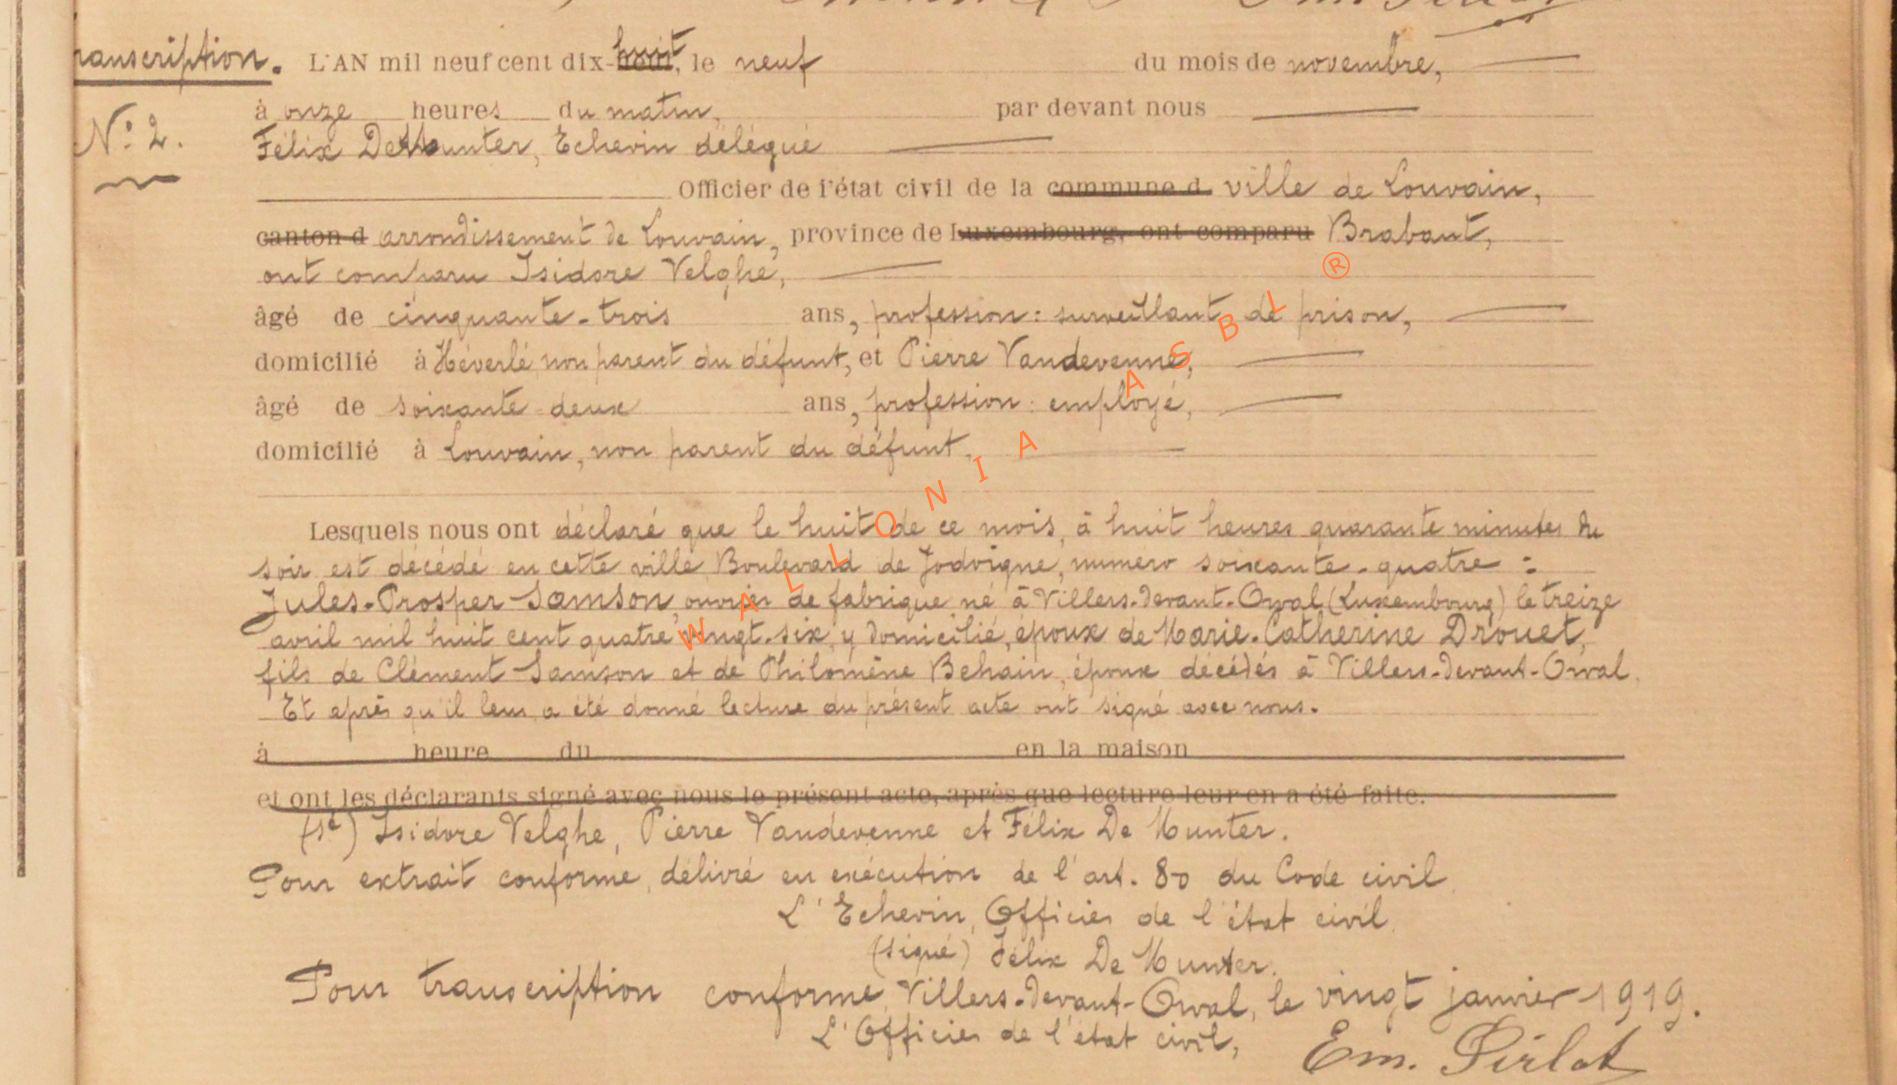 ranscription. L'AN mil neuf cent dix-huit, le neuf du mois de novembre,
N° 2. à onze heures du matin, par devant nous
Félix De Munter, Echevin délégué
Officier de l'état civil de la commune d ville de Louvain,
canton d arrondissement de Louvain, province de Luxembourg, ont comparu Brabant,
ont comparu Isidore Velghe,
âgé de cinquante-trois ans, profession: surveillant de prison,
domicilié à Héverlé, non parent du défunt, et Pierre Vandevenne,
âgé de soixante deux ans, profession: employé,
domicilié à Louvain, non parent du défunt.
Lesquels nous ont déclaré que le huit de ce mois, à huit heures quarante minutes du
soir est décédé en cette ville Boulevard de Jodoigne, numero soixante-quatre :
Jules-Prosper Samson, ouvrier de fabrique, né à Villers-devant-Orval (Luxembourg) le treize
avril mil huit cent quatre vingt-six, y domicilié, époux de Marie-Catherine Drouet,
fils de Clément Samson et de Philomène Behain, époux décédés à Villers-devant-Orval.
Et après qu'il leur a été donné lecture du présent acte ont signé avec nous.
à heure du en la maison
et ont les déclarants signé avec nous le présent acte, après que lecture leur en a été faite.
(sé) Isidore Velghe, Pierre Vandevenne et Félix De Munter.
Pour extrait conforme, délivré en exécution de l'art. 80 du Code civil.
L'Echevin, Officier de l'état civil.
(signé) Félix De Munter.
Pour transcription conforme, Villers-devant-Orval, le vingt janvier 1919.
L'Officier de l'état civil,
Em. Pirlot
WALLONIA ASBL ®